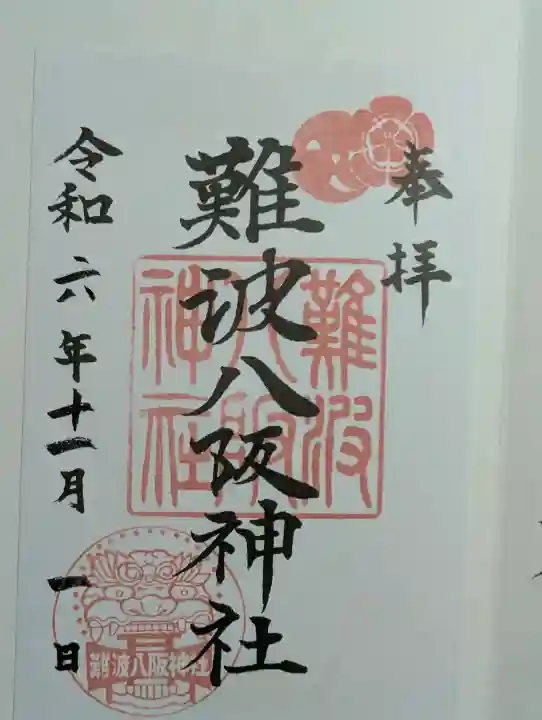 奉拝
難波八阪神社
難波八阪神社
令和六年十一月一日
難波八阪神社